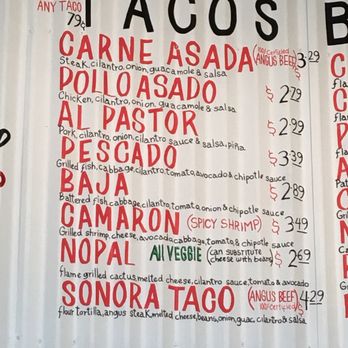 ANY TACO
79¢
TACOS
CARNE ASADA (100% Certified ANGUS BEEF) $3.29
Steak, cilantro, onion, guacamole & salsa
POLLO ASADO $2.79
Chicken, cilantro, onion, guacamole & salsa
AL PASTOR $2.99
Pork, cilantro, onion, cilantro sauce & salsa, piña
PESCADO $3.39
Grilled fish, cabbage, cilantro, tomato, avocado & chipotle sauce
BAJA $2.89
Battered fish, cabbage, cilantro, tomato, onion & chipotle sauce
CAMARON (SPICY SHRIMP) $3.49
Grilled shrimp, cheese, avocado, cabbage, tomato, & chipotle sauce
NOPAL All VEGGIE (can SUBSTITUTE cheese with beans) $2.69
flame grilled cactus, melted cheese, cilantro sauce, tomato & avocado
SONORA TACO (ANGUS BEEF 100% Certified) $4.29
flour tortilla, angus steak, melted cheese, beans, onion, guac, cilantro & salsa